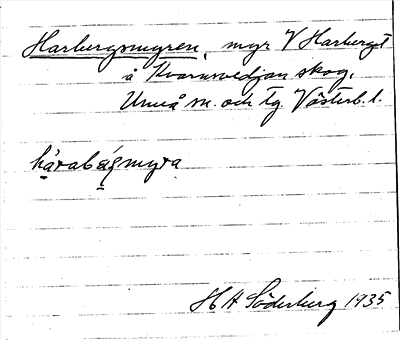 Harbergsmyren, myr V Harberget
å Kvarnsvedjan skog,
Umeå sn. och tg. Västerb. l.
hàrabárgmyra
H H Söderberg 1935